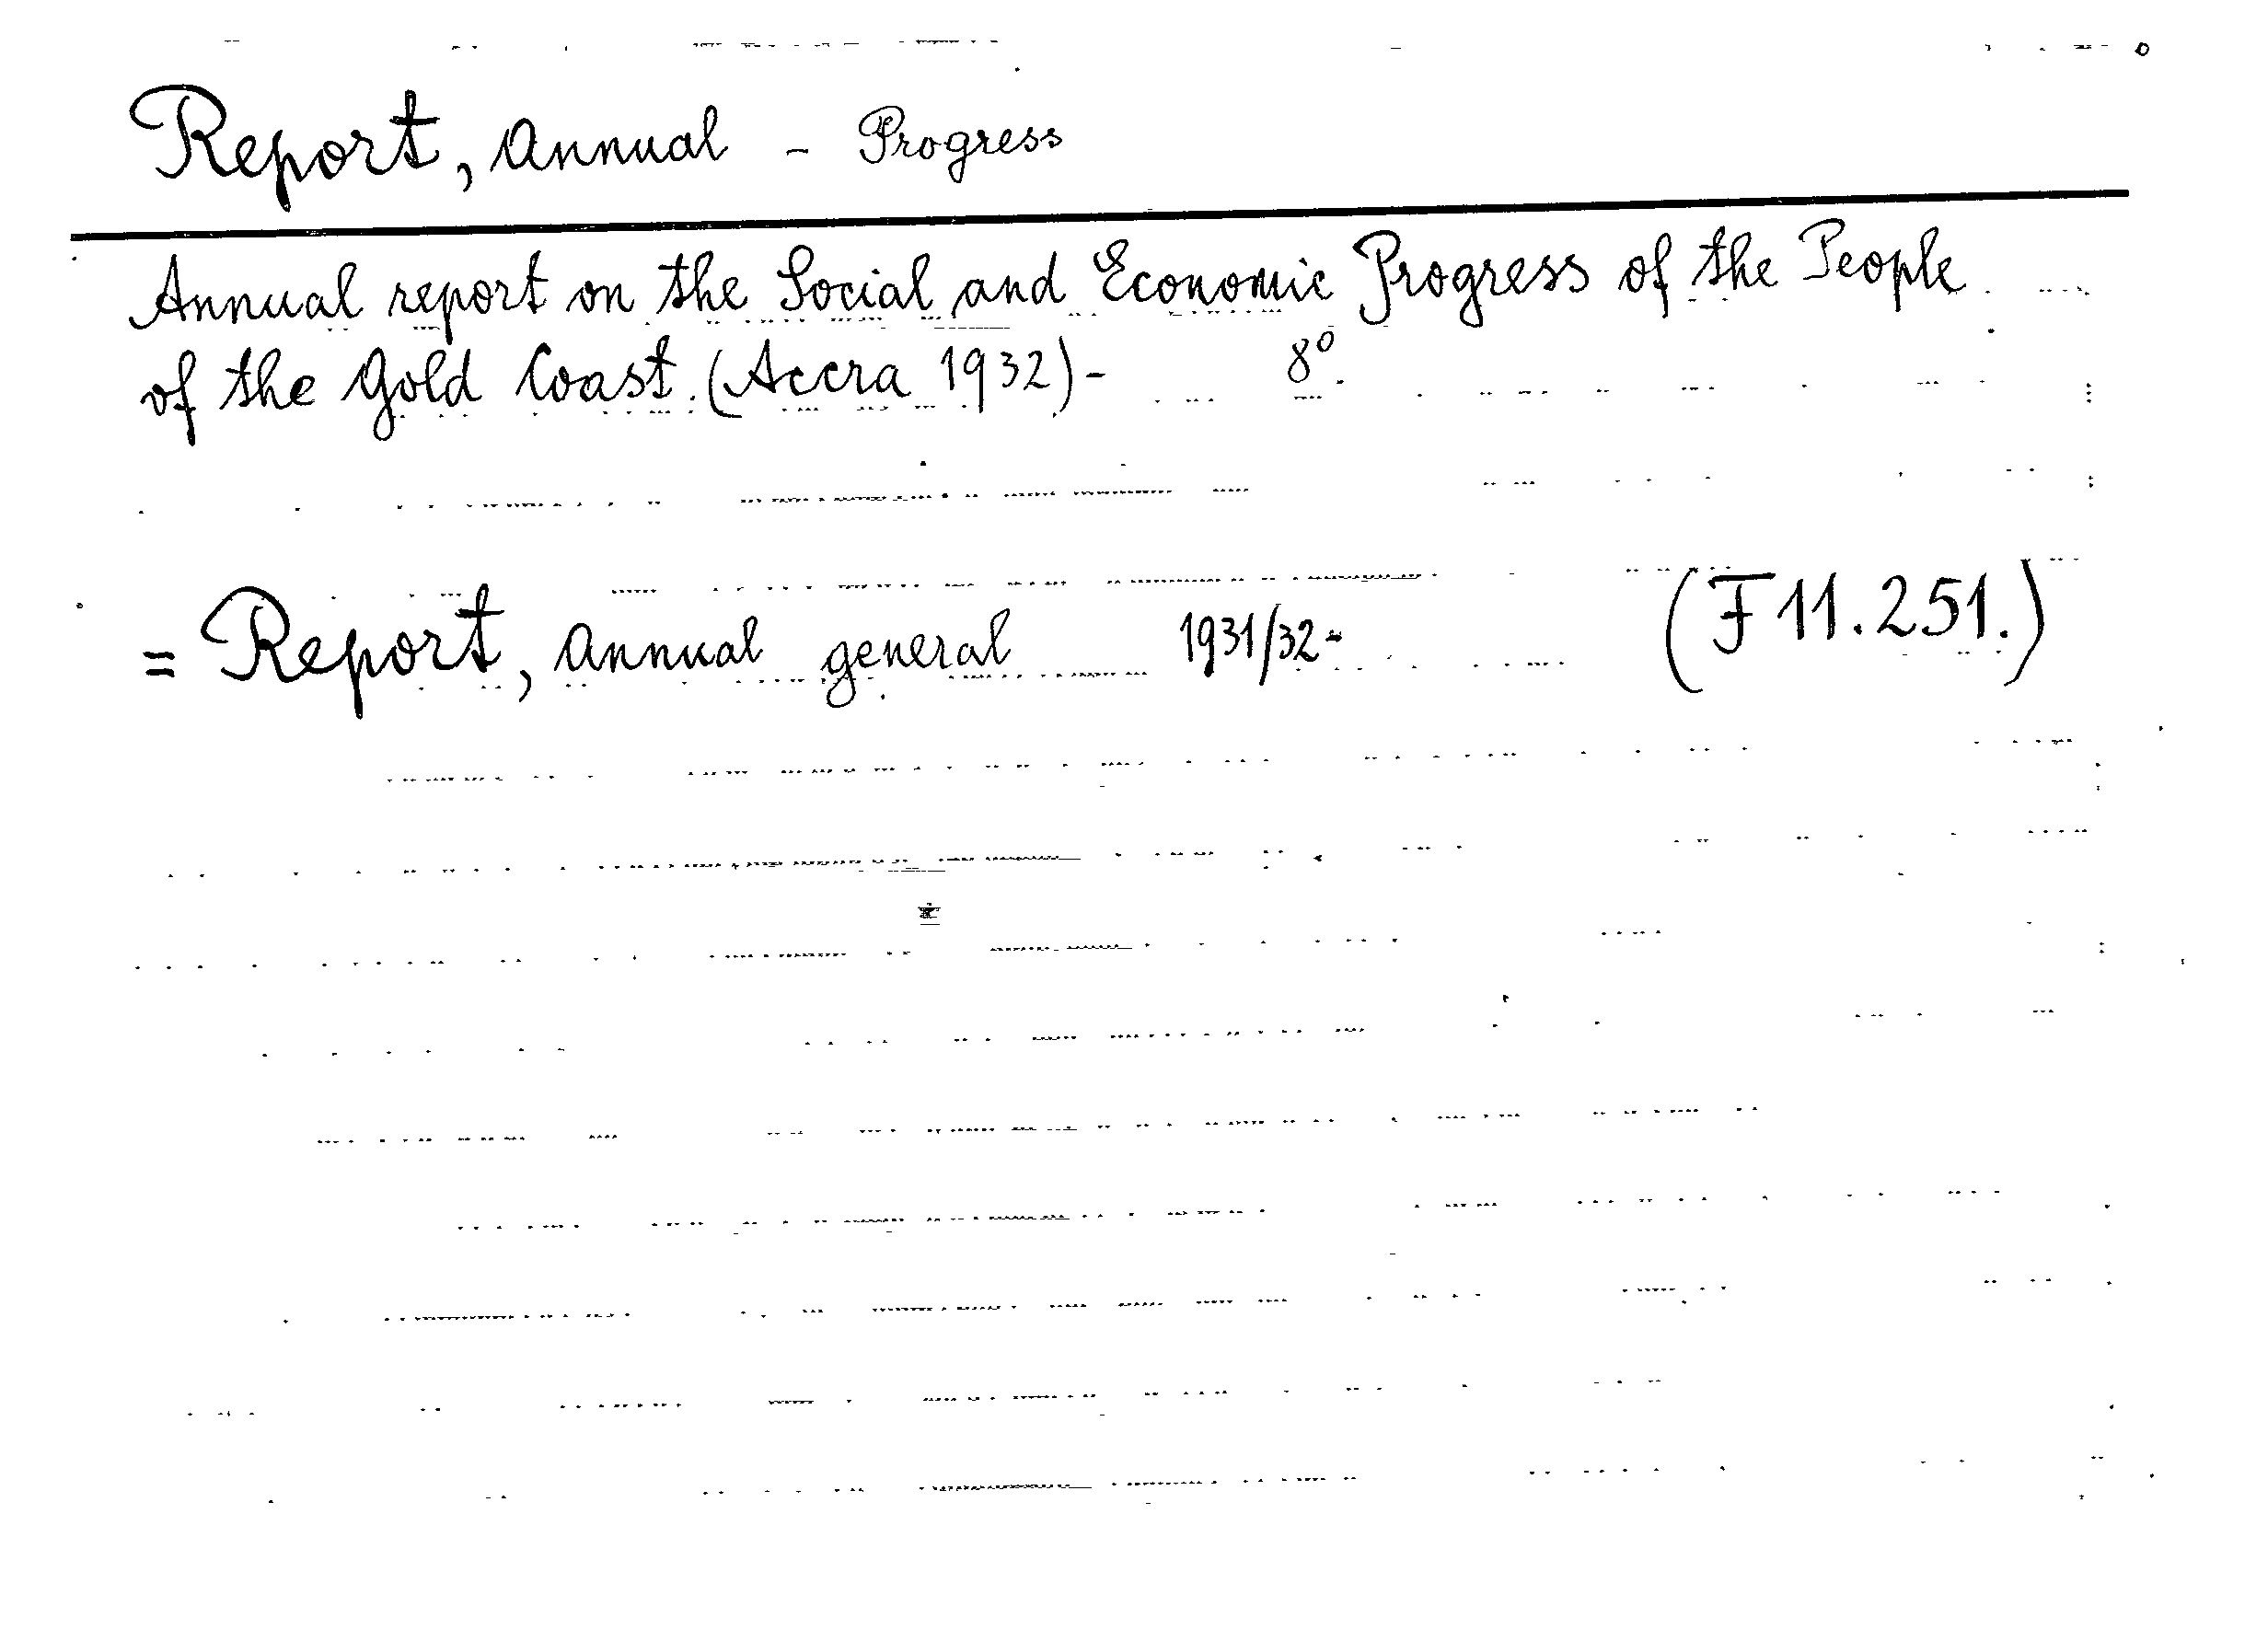 Report, Annual - Progress
Annual report on the Social and Economic Progress of the People
of the Gold Coast. (Accra 1932)- 8°.
= Report, Annual general 1931/32- (F 11.251.)